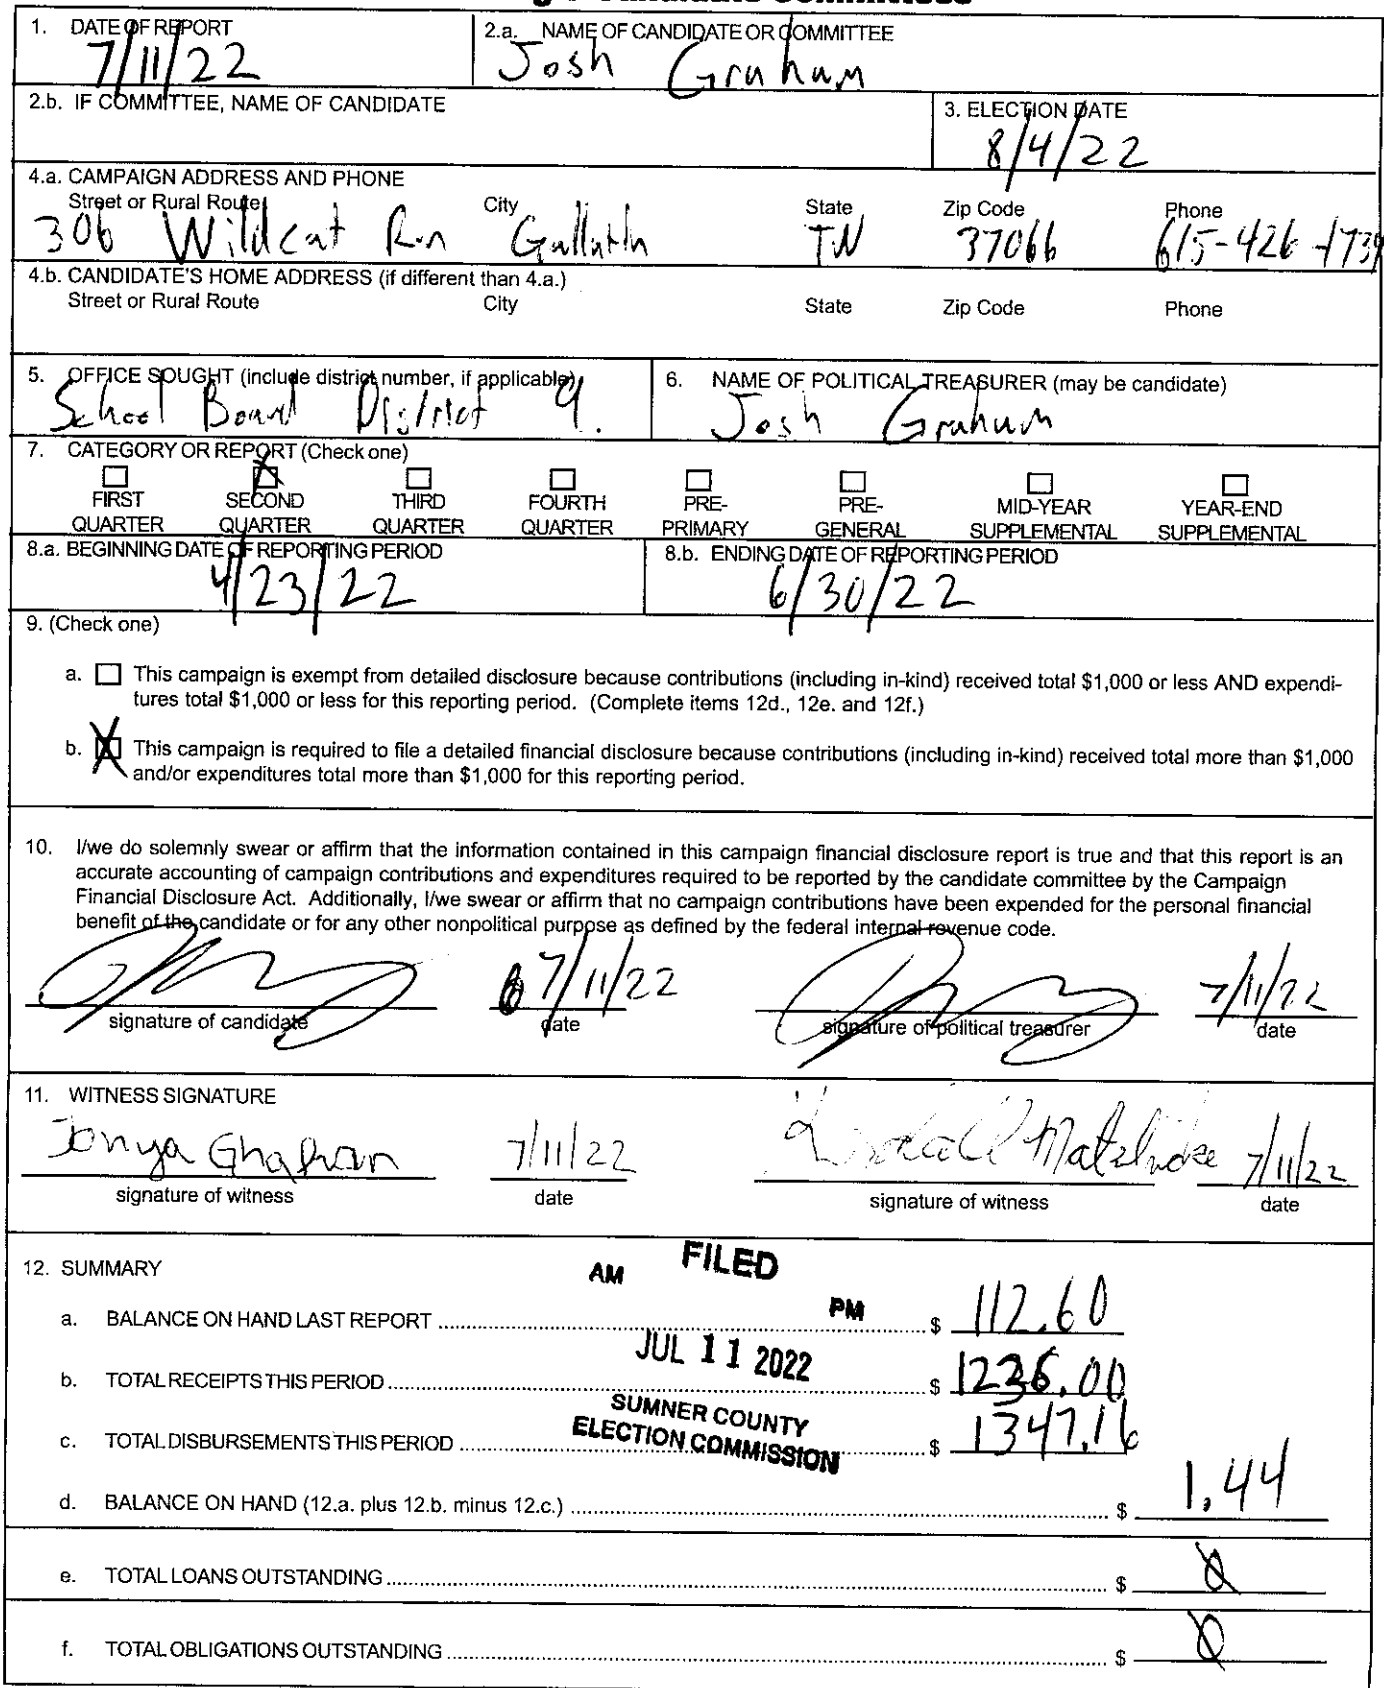 1. DATE OF REPORT
7/11/22
2.a. NAME OF CANDIDATE OR COMMITTEE
Josh Graham
2.b. IF COMMITTEE, NAME OF CANDIDATE
3. ELECTION DATE
8/4/22
4.a. CAMPAIGN ADDRESS AND PHONE
Street or Rural Route City State Zip Code Phone
306 Wildcat Run Gallatin TN 37066 615-426-1739
4.b. CANDIDATE'S HOME ADDRESS (if different than 4.a.)
Street or Rural Route City State Zip Code Phone
5. OFFICE SOUGHT (include district number, if applicable)
School Board District 9.
6. NAME OF POLITICAL TREASURER (may be candidate)
Josh Graham
7. CATEGORY OR REPORT (Check one)
FIRST QUARTER
X SECOND QUARTER
THIRD QUARTER
FOURTH QUARTER
PRE-PRIMARY
PRE-GENERAL
MID-YEAR SUPPLEMENTAL
YEAR-END SUPPLEMENTAL
8.a. BEGINNING DATE OF REPORTING PERIOD
4/23/22
8.b. ENDING DATE OF REPORTING PERIOD
6/30/22
9. (Check one)
a. This campaign is exempt from detailed disclosure because contributions (including in-kind) received total $1,000 or less AND expendi-
tures total $1,000 or less for this reporting period. (Complete items 12d., 12e. and 12f.)
b. X This campaign is required to file a detailed financial disclosure because contributions (including in-kind) received total more than $1,000
and/or expenditures total more than $1,000 for this reporting period.
10. I/we do solemnly swear or affirm that the information contained in this campaign financial disclosure report is true and that this report is an
accurate accounting of campaign contributions and expenditures required to be reported by the candidate committee by the Campaign
Financial Disclosure Act. Additionally, I/we swear or affirm that no campaign contributions have been expended for the personal financial
benefit of the candidate or for any other nonpolitical purpose as defined by the federal internal revenue code.
7/11/22 7/11/22
signature of candidate date signature of political treasurer date
11. WITNESS SIGNATURE
Tonya 7/11/22 7/11/22
signature of witness date signature of witness date
12. SUMMARY
AM FILED PM
JUL 11 2022
SUMNER COUNTY
ELECTION COMMISSION
a. BALANCE ON HAND LAST REPORT $ 112.60
b. TOTAL RECEIPTS THIS PERIOD $ 1236.00
c. TOTAL DISBURSEMENTS THIS PERIOD $ 1347.16
d. BALANCE ON HAND (12.a. plus 12.b. minus 12.c.) $ 1.44
e. TOTAL LOANS OUTSTANDING $ 0
f. TOTAL OBLIGATIONS OUTSTANDING $ 0